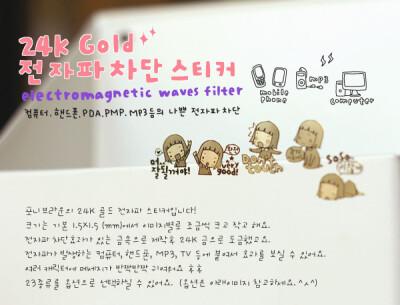 24k Gold
전자파 차단 스티커
electromagnetic waves filter
컴퓨터, 핸드폰, PDA, PMP, MP3등의 나쁜 전자파 차단
mobile phone
mp3
computer
잘될거야!
very good!
SOSO
포니브라운의 24K 골드 전자파 스티커입니다!
크기는 기본 1.5X1.5 (mm)에서 이미지별로 조금씩 크고 작고 해요.
전자파 차단효과가 있는 금속으로 제작후 24K 금으로 도금했고요.
전자파가 발생하는 컴퓨터, 핸드폰, MP3, TV 등에 붙여서 효과를 보실 수 있어요.
여러 캐릭터에 메세지가 반짝반짝 귀여워요 후후
23종류를 옵션으로 선택하실 수 있어요. (옵션은 아래이미지 참고하세요. ^.^)